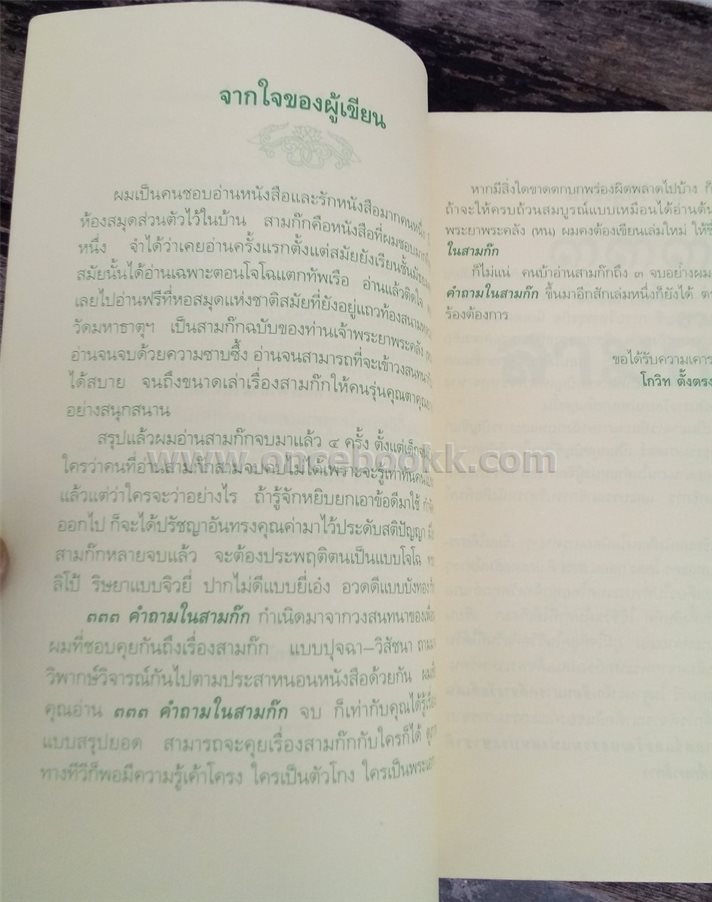 จากใจของผู้เขียน
ผมเป็นคนชอบอ่านหนังสือและรักหนังสือมากคนหนึ่ง
ห้องสมุดส่วนตัวไว้ในบ้าน สามก๊กคือหนังสือที่ผมชอบมาก
หนึ่ง จำได้ว่าเคยอ่านครั้งแรกตั้งแต่สมัยยังเรียนชั้นมัธยม
สมัยนั้นได้อ่านเฉพาะตอนโจโฉแตกทัพเรือ อ่านแล้วติดใจ
เลยไปอ่านฟรีที่หอสมุดแห่งชาติสมัยที่ยังอยู่แถวท้องสนามหลวง
วัดมหาธาตุฯ เป็นสามก๊กฉบับของท่านเจ้าพระยาพระคลัง
อ่านจนจบด้วยความซาบซึ้ง อ่านจนสามารถที่จะเข้าวงสนทนา
ได้สบาย จนถึงขนาดเล่าเรื่องสามก๊กให้คนรุ่นคุณตาคุณยาย
อย่างสนุกสนาน
สรุปแล้วผมอ่านสามก๊กจบมาแล้ว ๔ ครั้ง ตั้งแต่เด็กจน
ใครว่าคนที่อ่านสามก๊กสามจบคบไม่ได้เพราะจะรู้เท่าทันคน
แล้วแต่ว่าใครจะว่าอย่างไร ถ้ารู้จักหยิบยกเอาข้อดีมาใช้
ออกไป ก็จะได้ปรัชญาอันทรงคุณค่ามาไว้ประดับสติปัญญา
สามก๊กหลายจบแล้ว จะต้องประพฤติตนเป็นแบบโจโฉ
ลิโป้ ริษยาแบบจิวยี่ ปากไม่ดีแบบยี่เอ๋ง อวดดีแบบบังทอง
๓๓๓ คำถามในสามก๊ก กำเนิดมาจากวงสนทนาของเพื่อน
ผมที่ชอบคุยกันถึงเรื่องสามก๊ก แบบปุจฉา–วิสัชนา
วิพากษ์วิจารณ์กันไปตามประสาหนอนหนังสือด้วยกัน
คุณอ่าน ๓๓๓ คำถามในสามก๊ก จบ ก็เท่ากับคุณได้รู้เรื่อง
แบบสรุปยอด สามารถจะคุยเรื่องสามก๊กกับใครก็ได้
ทางทีวีก็พอมีความรู้เค้าโครง ใครเป็นตัวโกง ใครเป็นพระเอก
หากมีสิ่งใดขาดตกบกพร่องผิดพลาดไปบ้าง ก็
ถ้าจะให้ครบถ้วนสมบูรณ์แบบเหมือนได้อ่านต้น
พระยาพระคลัง (หน) ผมคงต้องเขียนเล่มใหม่ ให้ชื่
ในสามก๊ก
ก็ไม่แน่ คนบ้าอ่านสามก๊กถึง ๓ จบอย่างผม
คำถามในสามก๊ก ขึ้นมาอีกสักเล่มหนึ่งก็ยังได้
ร้องต้องการ
ขอได้รับความเคาร
โกวิท ตั้งตรง
www.oncebookk.com